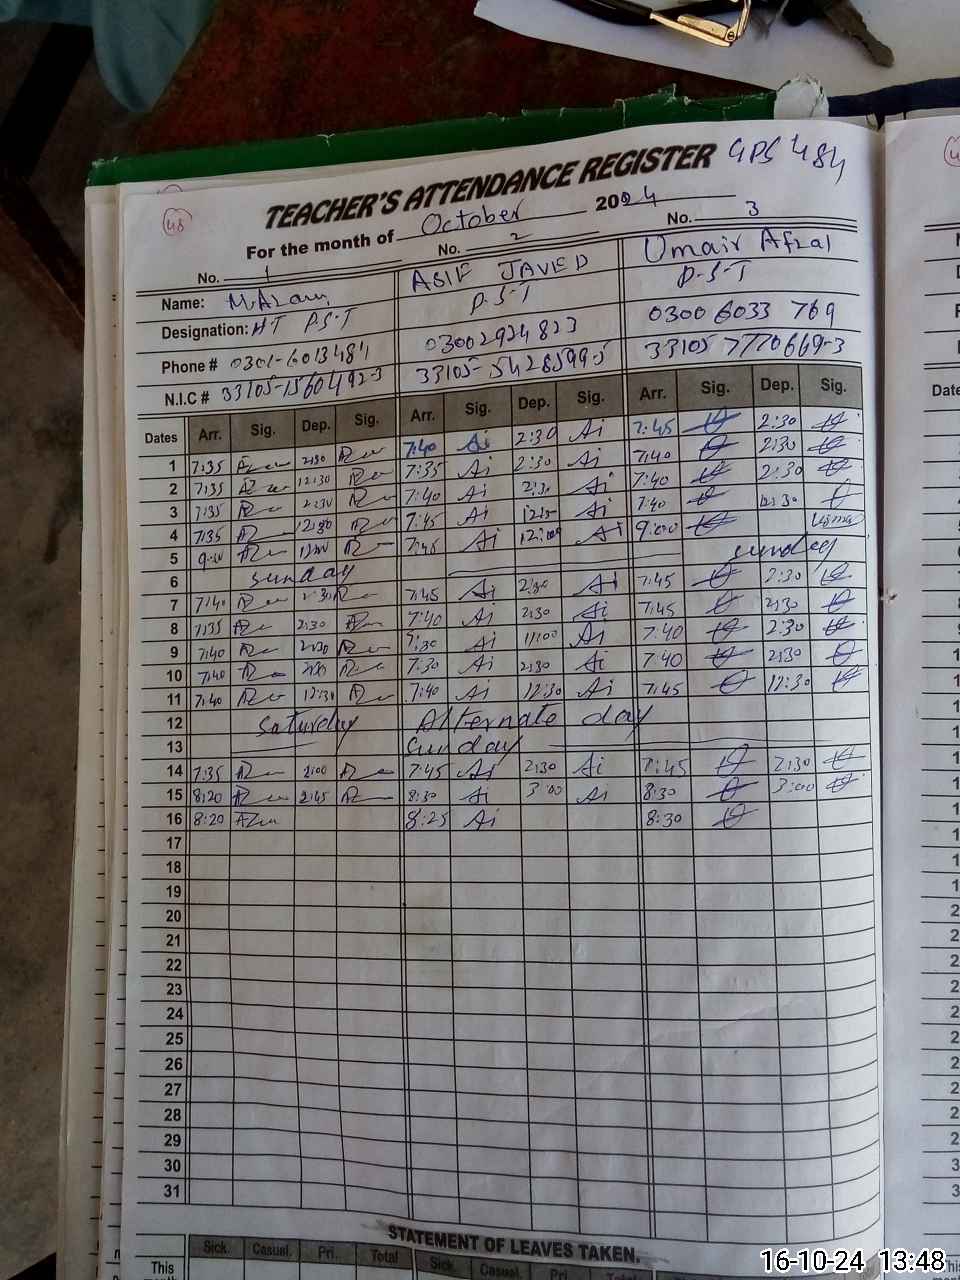 GPS 484
48
TEACHER'S ATTENDANCE REGISTER
For the month of October 2024
No. 1 No. 2 No. 3
Name: M.Azam ASIF JAVED Umair Afzal
Designation: HT P.S.T P.S.T P.S.T
Phone # 0301-6013484 03002924823 0300 6033 769
N.I.C # 33105-1560492-3 33105-5428599-5 33105 7770669-3
Dates Arr. Sig. Dep. Sig. Arr. Sig. Dep. Sig. Arr. Sig. Dep. Sig.
1 7:35 2:30 7:40 Ai 2:30 Ai 7:45 2:30
2 7:35 12:30 7:35 Ai 2:30 Ai 7:40 2:30
3 7:35 2:30 7:40 Ai 2:30 Ai 7:40 2:30
4 7:35 12:30 7:45 Ai Ai 7:40 12:30
5 7:45 Ai 12:00 Ai 9:00
6 sunday sunday
7 7:40 2:30 7:45 Ai 2:30 Ai 7:45 2:30
8 7:35 2:30 7:40 Ai 2:30 Ai 7:45 2:30
9 7:40 2:30 7:30 Ai 11:00 Ai 7:40 2:30
10 7:40 2:30 7:30 Ai 2:30 Ai 7:40 2:30
11 7:40 12:30 7:40 Ai 12:30 Ai 7:45 12:30
12 Saturday Alternate day
13 Sunday
14 7:35 2:00 7:45 Ai 2:30 Ai 7:45 2:30
15 8:20 2:45 8:30 Ai 3:00 Ai 8:30 3:00
16 8:20 8:25 Ai 8:30
17
18
19
20
21
22
23
24
25
26
27
28
29
30
31
STATEMENT OF LEAVES TAKEN.
Sick. Casual. Pri. Total Sick. Casual. Pri. Total
This
16-10-24 13:48